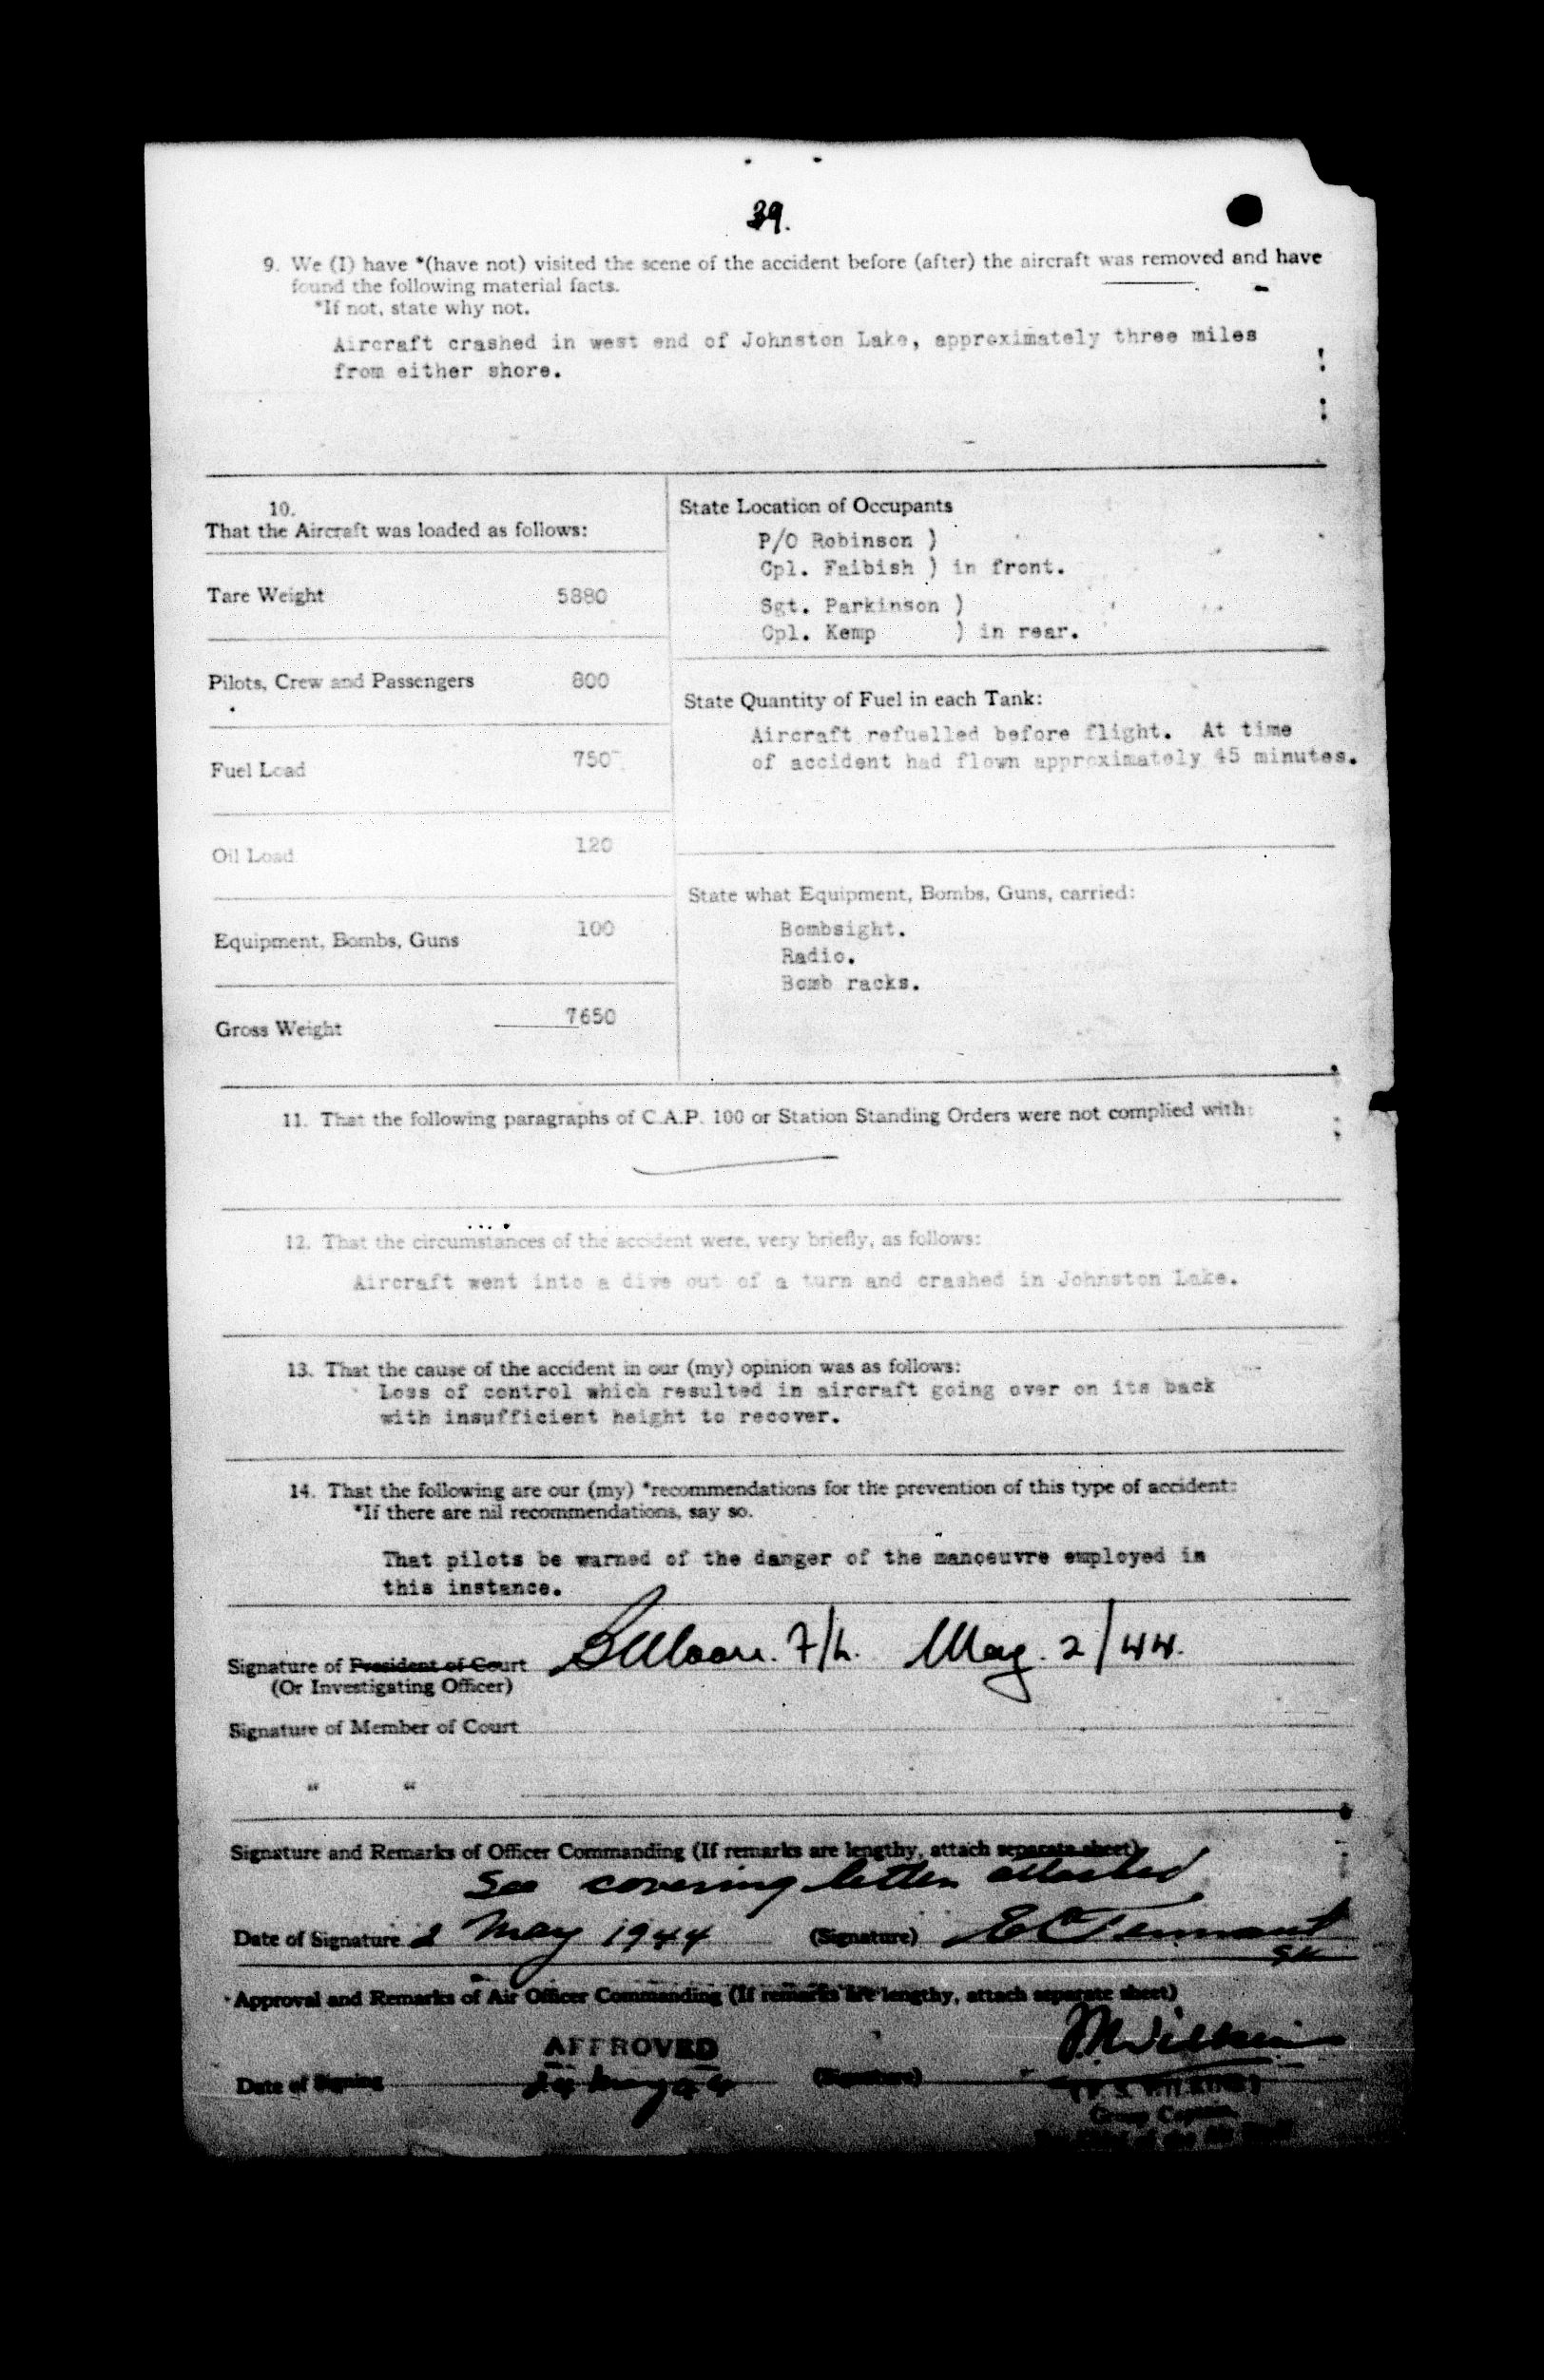 39.
9. We (I) have *(have not) visited the scene of the accident before (after) the aircraft was removed and have
found the following material facts.
*If not, state why not.
Aircraft crashed in west end of Johnston Lake, approximately three miles
from either shore.
10.
That the Aircraft was loaded as follows:
Tare Weight 5880
Pilots, Crew and Passengers 800
Fuel Load 750
Oil Load 120
Equipment, Bombs, Guns 100
Gross Weight 7650
State Location of Occupants
P/O Robinson )
Cpl. Faibish ) in front.
Sgt. Parkinson )
Cpl. Kemp ) in rear.
State Quantity of Fuel in each Tank:
Aircraft refuelled before flight. At time
of accident had flown approximately 45 minutes.
State what Equipment, Bombs, Guns, carried:
Bombsight.
Radio.
Bomb racks.
11. That the following paragraphs of C.A.P. 100 or Station Standing Orders were not complied with:
12. That the circumstances of the accident were, very briefly, as follows:
Aircraft went into a dive out of a turn and crashed in Johnston Lake.
13. That the cause of the accident in our (my) opinion was as follows:
Loss of control which resulted in aircraft going over on its back
with insufficient height to recover.
14. That the following are our (my) *recommendations for the prevention of this type of accident:
*If there are nil recommendations, say so.
That pilots be warned of the danger of the manoeuvre employed in
this instance.
Signature of President of Court F/L. May. 2/44.
(Or Investigating Officer)
Signature of Member of Court
" "
Signature and Remarks of Officer Commanding (If remarks are lengthy, attach separate sheet)
See covering letter attached
Date of Signature 2 May 1944 (Signature) E C Tennant
Approval and Remarks of Air Officer Commanding (If remarks are lengthy, attach separate sheet)
APPROVED
Date of Signing 24 May 44 (Signature)
Group Captain